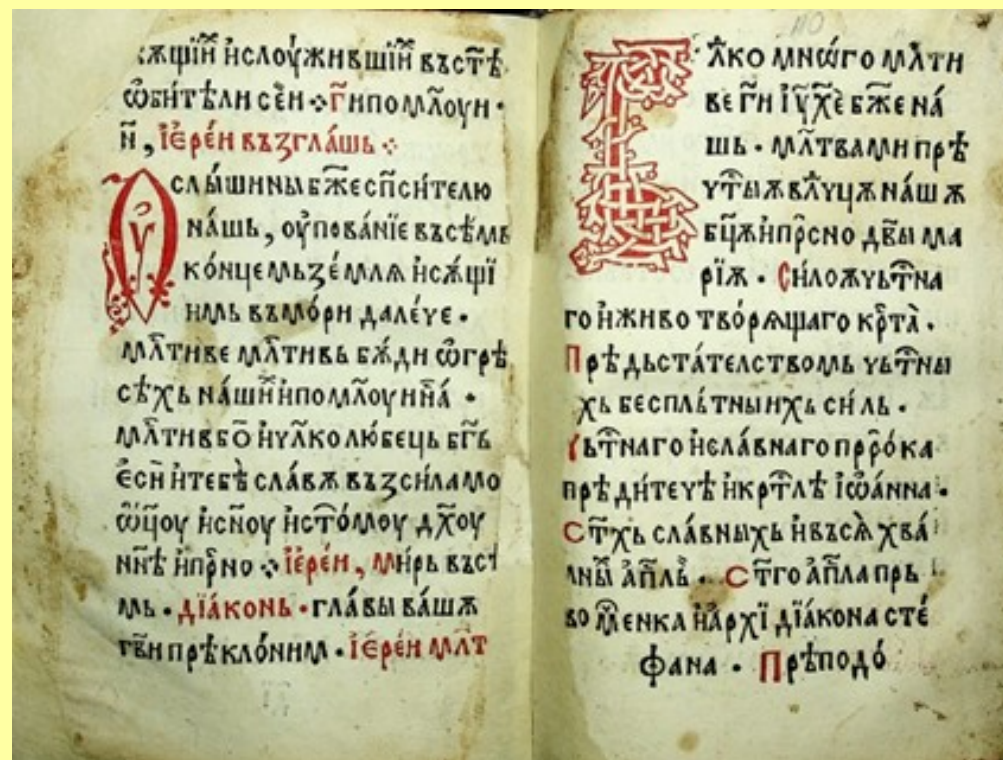 жщїи̑ и҆слоу́жившїи̑ въстѣ
ѡ҆би́тѣли се́и ⁘ г҃и помл҃оуи ·
н̑, і҆ере́и възгла́шь ⁘
Оу слы́шины бж҃е сп҃си́телю
на́шь, оу҆пова́нїе въсѣ́мь
ко́нцемь зе́млѧ и҆сѫ́щїи
имь въмо́ри дале́че ·
мл҃тиве мл҃тивь бѫ́ди ѡ҆грѣ
сѣ́хь на́ши̑ и҆помл҃оуи на́ ·
мл҃тив бо̀ и҆чл҃колю́бець бг҃ь
е҆сѝ и҆тебѣ̀ сла́вѫ въз си́ламо
ѡ҆ц҃оу и҆сн҃оу и҆ст҃о́моу дх҃оу
нн҃ѣ и҆прⷭ҇но ⁘ і҆ере́и, ми́рь въсѣ
мь · дїа́конь · гла́вы ва́шѧ
гв҃и прѣкло́ним · і҆ере́и мл҃т
110
Ꙗ҆́ко мнѡ́го мл҃ти
ве г҃и і҆ѵ҃ х҃ѐ бж҃е на́
шь · мл҃твами прѣ
чт҃ыѫ влч҃цѫ на́шѫ
бц҃ѫ и҆прⷭ҇но дв҃ы ма
рїѫ · си́лоѫ чьт҃на
го и҆живо тво́рѧщаго крⷭ҇та̀ ·
Прѣ́дьста́телствомь чьт҃ны
хь беспль́тныихь си́ль ·
Чьт҃наго и҆сла́внаго прⷪ҇ро́ка
прѣ́дитечѣ и҆крⷭ҇т҃лѣ і҆ѡ҆а́нна ·
Ст҃хь сла́вныхь и҆въсѧ̀ хва́
лны̑ а҆пⷭ҇ль · Ст҃го а҆пⷭ҇ла прь
во м҃ⷱенка и҆а҆рхї дїа́кона сте́
фана · Прѣподо́